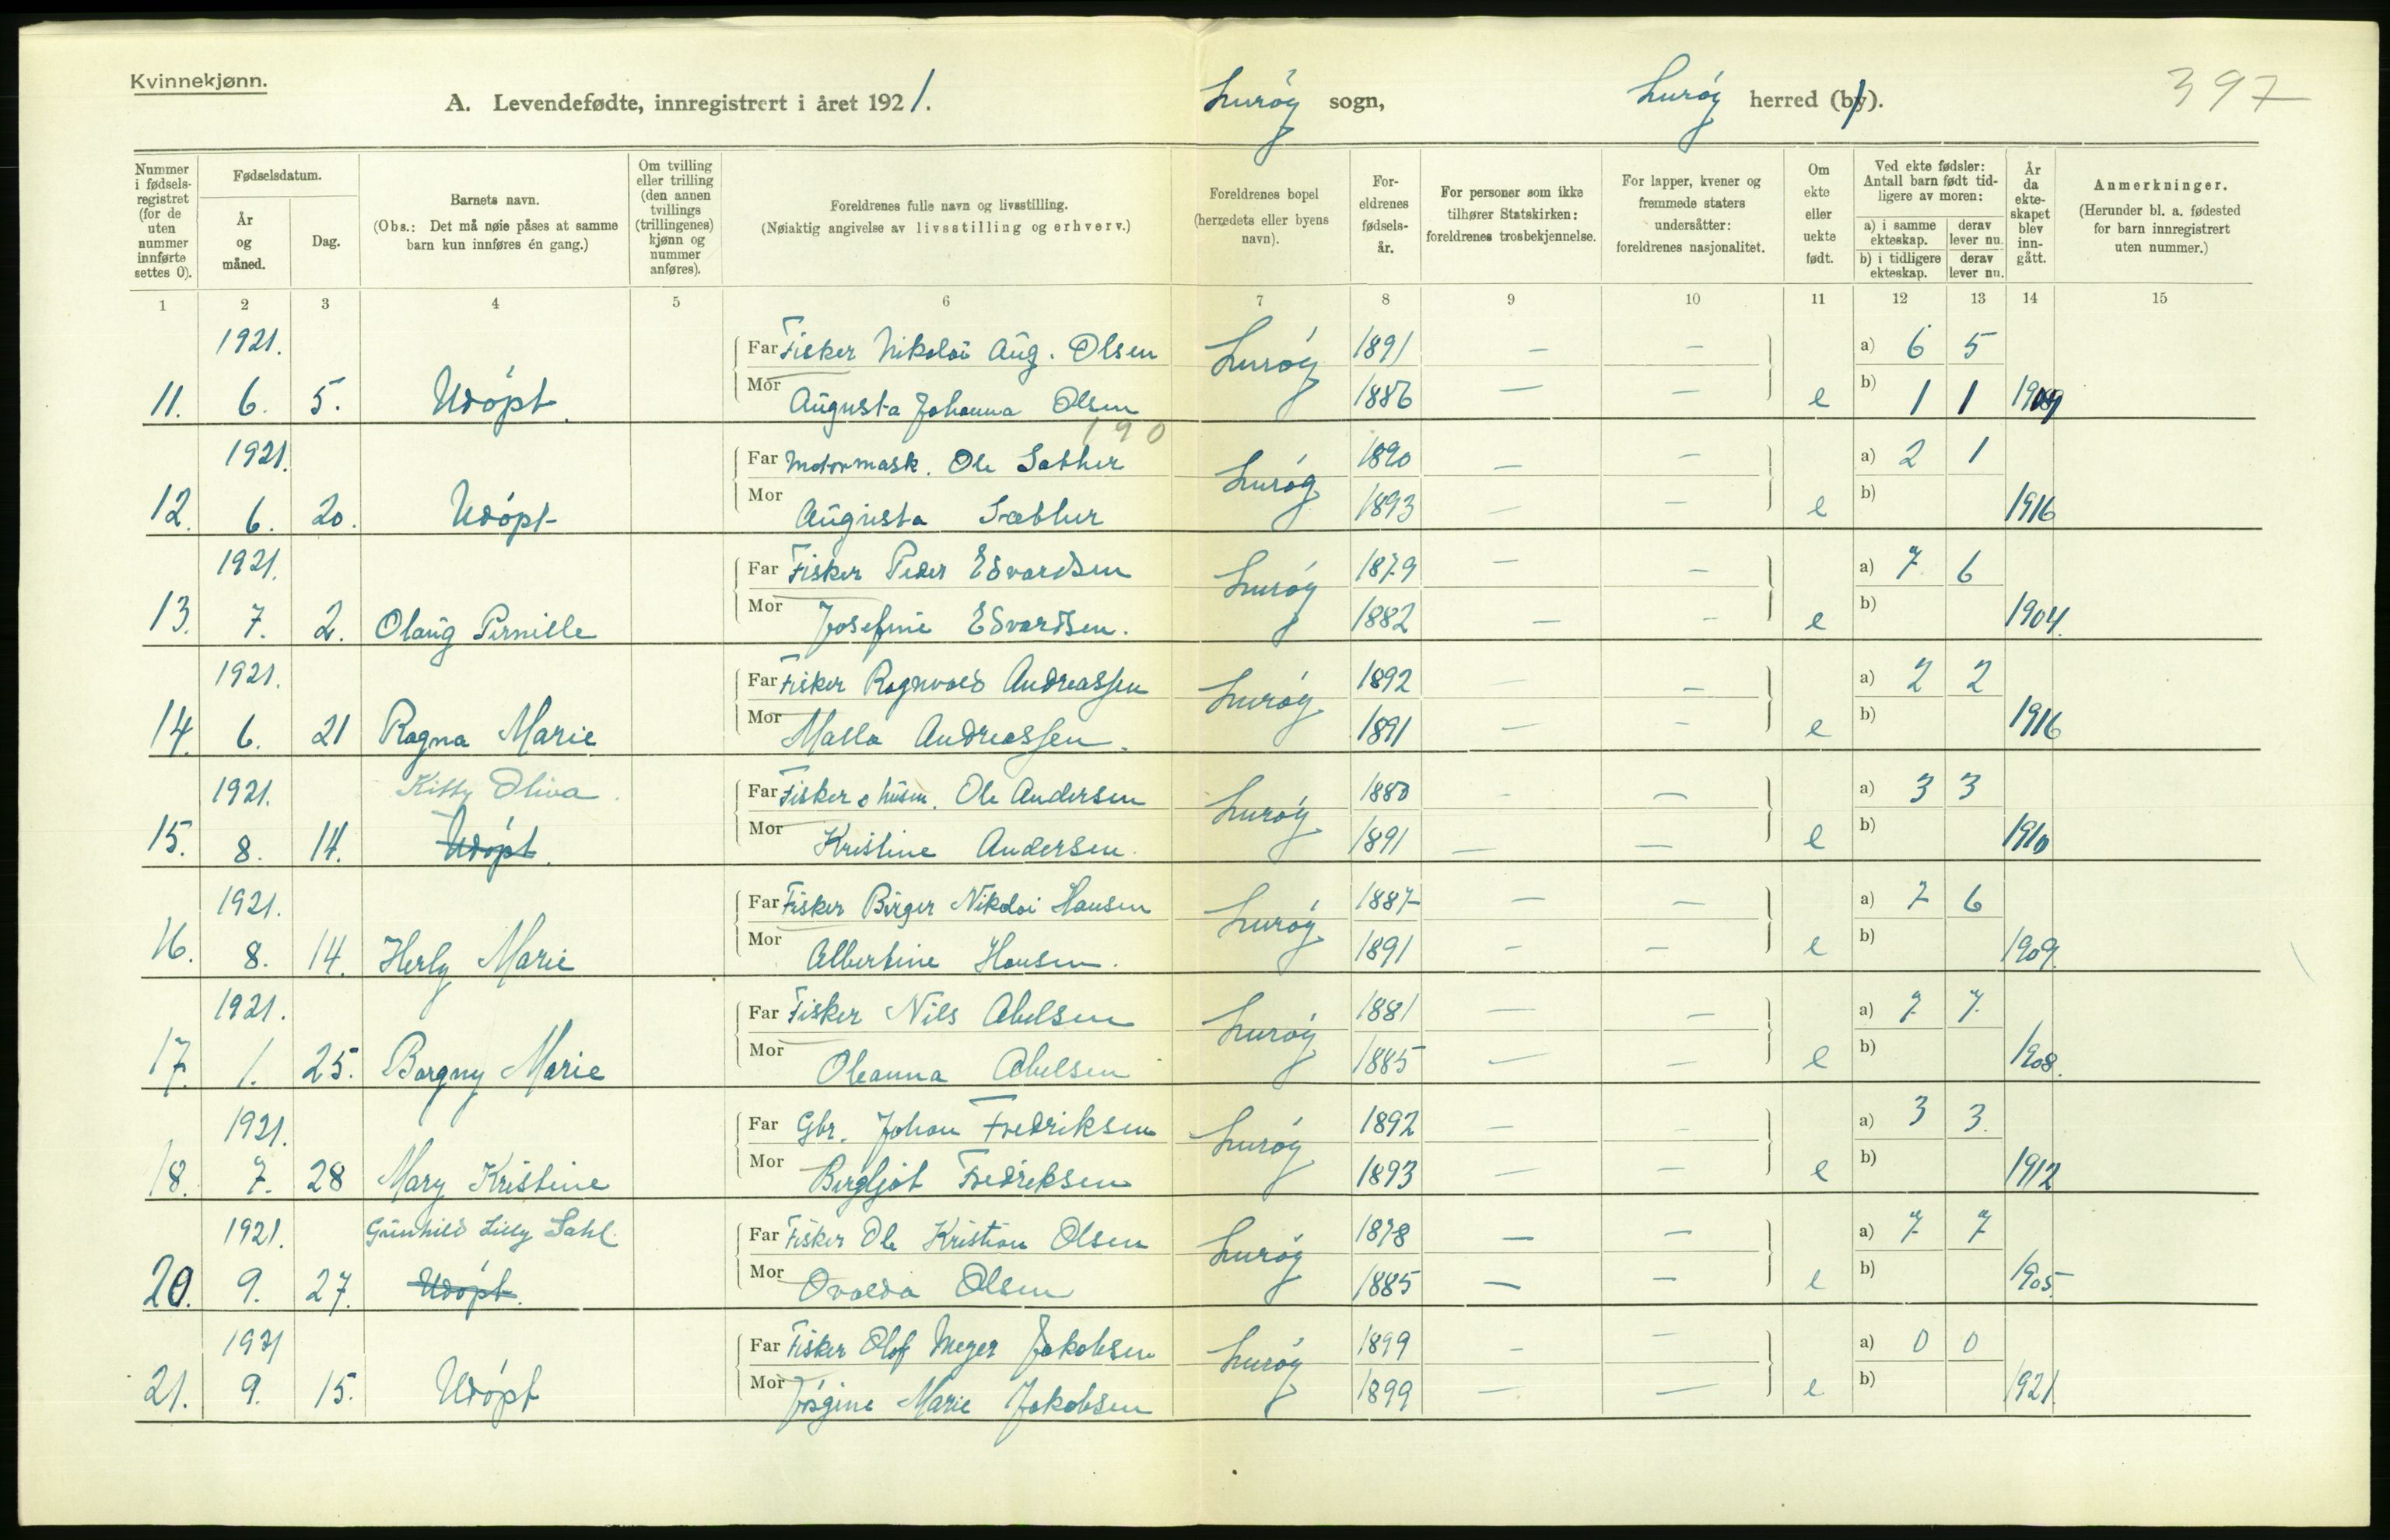 Kvinnekjønn.
A. Levendefødte, innregistrert i året 1921. Lurøy sogn, Lurøy herred (by). 397
Nummer i fødselsregistret (for de uten nummer innførte settes 0).
Fødselsdatum.
År og måned.
Dag.
Barnets navn.
(Obs.: Det må nøie påses at samme barn kun innføres én gang.)
Om tvilling eller trilling (den annen tvillings (trillingenes) kjønn og nummer anføres).
Foreldrenes fulle navn og livsstilling.
(Nøiaktig angivelse av livsstilling og erhverv.)
Foreldrenes bopel (herredets eller byens navn).
Foreldrenes fødselsår.
For personer som ikke tilhører Statskirken: foreldrenes trosbekjennelse.
For lapper, kvener og fremmede staters undersåtter: foreldrenes nasjonalitet.
Om ekte eller uekte født.
Ved ekte fødsler: Antall barn født tidligere av moren:
a) i samme ekteskap. derav lever nu.
b) i tidligere ekteskap. derav lever nu.
År da ekteskapet blev inngått.
Anmerkninger.
(Herunder bl. a. fødested for barn innregistrert uten nummer.)
1 2 3 4 5 6 7 8 9 10 11 12 13 14 15
1921. Far Fisker Nikolai Aug. Olsen Lurøy 1891 — — a) 6 5
11. 6. 5. Udöpt. Mor Augusta Johanna Olsen 1886 — — e b) 1 1 1909
190
1921. Far Motormask. Ole Sæther Lurøy 1890 — — a) 2 1
12. 6. 20. Udöpt Mor Augusta Sæther 1893 — — e b) 1916
1921. Far Fisker Peder Edvardsen Lurøy 1879 — — a) 7 6
13. 7. 2. Olaug Pernille Mor Josefine Edvardsen. 1882 — — e b) 1904.
1921. Far Fisker Ragnvald Andreassen Lurøy 1892 — — a) 2 2
14. 6. 21 Ragna Marie Mor Malla Andreassen. 1891 — — e b) 1916
1921. Kitty Oliva. Far Fisker o husm. Ole Andersen Lurøy 1880 — — a) 3 3
15. 8. 14. Udöpt. Mor Kristine Andersen. 1891 — — e b) 1910
1921. Far Fisker Birger Nikolai Hansen Lurøy 1887 — — a) 7 6
16. 8. 14. Herly Marie Mor Albertine Hansen. 1891 — — e b) 1909.
1921. Far Fisker Nils Abelsen Lurøy 1881 — — a) 7 7
17. 1. 25. Borgny Marie Mor Oleanna Abelsen 1885 — — e b) 1908.
1921. Far Gbr. Johan Fredriksen Lurøy 1892 — — a) 3 3.
18. 7. 28 Mary Kristine Mor Bergljot Fredriksen 1893 — — e b) 1912
1921. Gunhild Lilly Dahl. Far Fisker Ole Kristian Olsen Lurøy 1878 — — a) 7 7
20. 9. 27. Udöpt. Mor Ovalda Olsen 1885 — — e b) 1905.
1921 Far Fisker Olof Meyer Jakobsen Lurøy 1899 — — a) 0 0
21. 9. 15. Udöpt Mor Jørgine Marie Jakobsen 1899 — — e b) 1921.